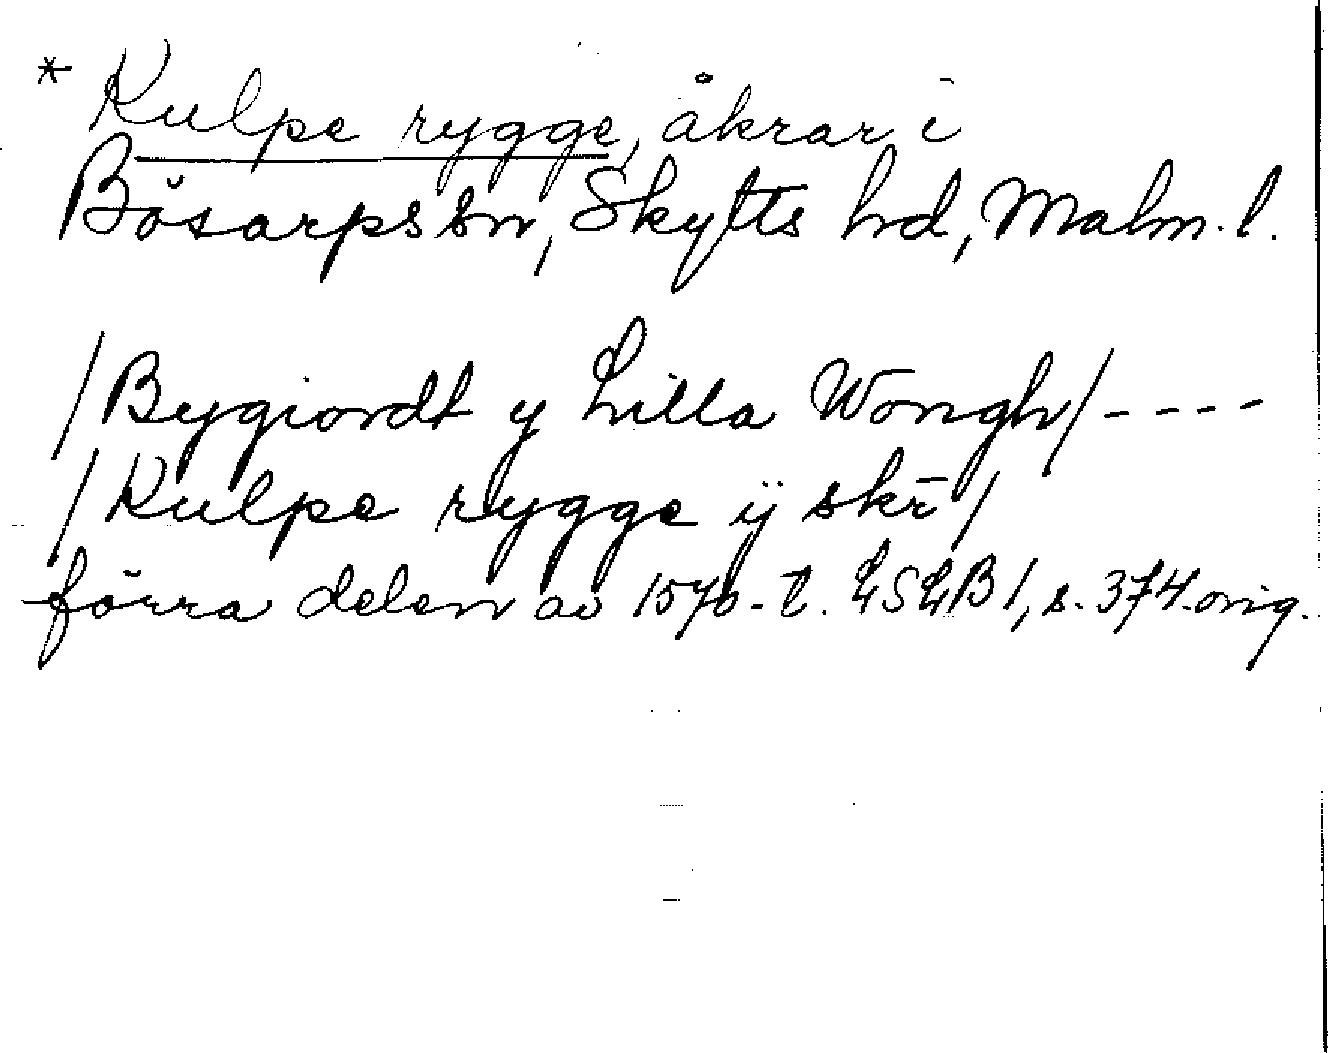 * Kulpe rygge, åkrar i
Bösarps sn, Skytts hd, Malm. l.
/Bygiordt y Lilla Wongh/----
/Kulpe rygge ÿ skr̄/
förra delen av 1570-t. LSLB 1, s. 374. orig.